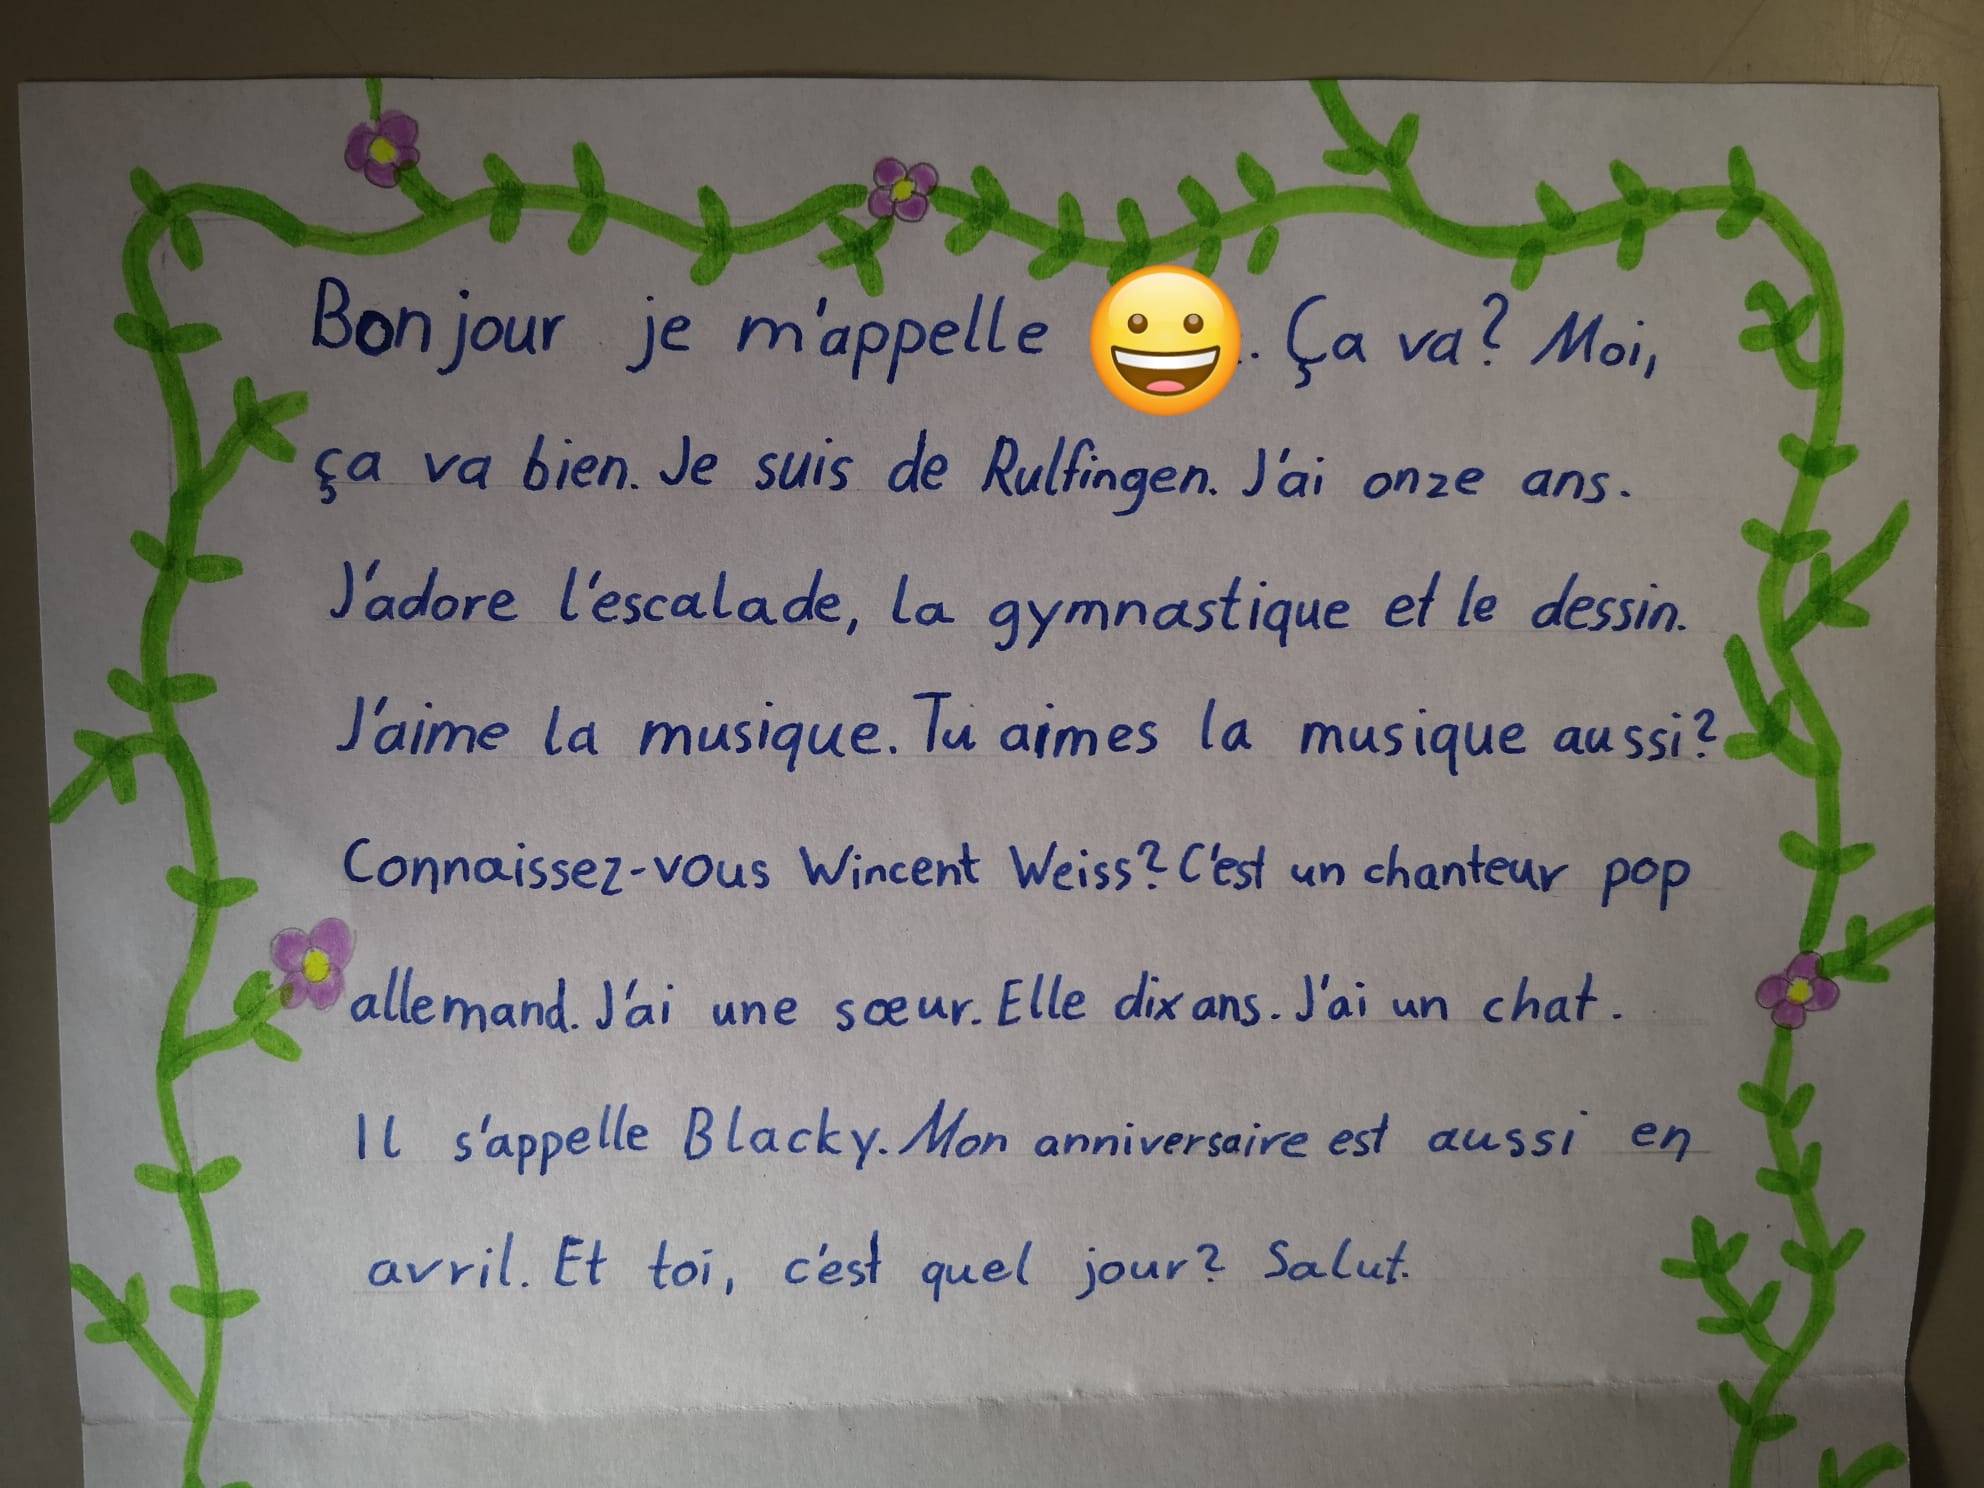 Bonjour je m'appelle . Ça va? Moi,
ça va bien. Je suis de Rulfingen. J'ai onze ans.
J'adore l'escalade, la gymnastique et le dessin.
J'aime la musique. Tu aimes la musique aussi?
Connaissez-vous Wincent Weiss? C'est un chanteur pop
allemand. J'ai une sœur. Elle dix ans. J'ai un chat.
Il s'appelle Blacky. Mon anniversaire est aussi en
avril. Et toi, c'est quel jour? Salut.